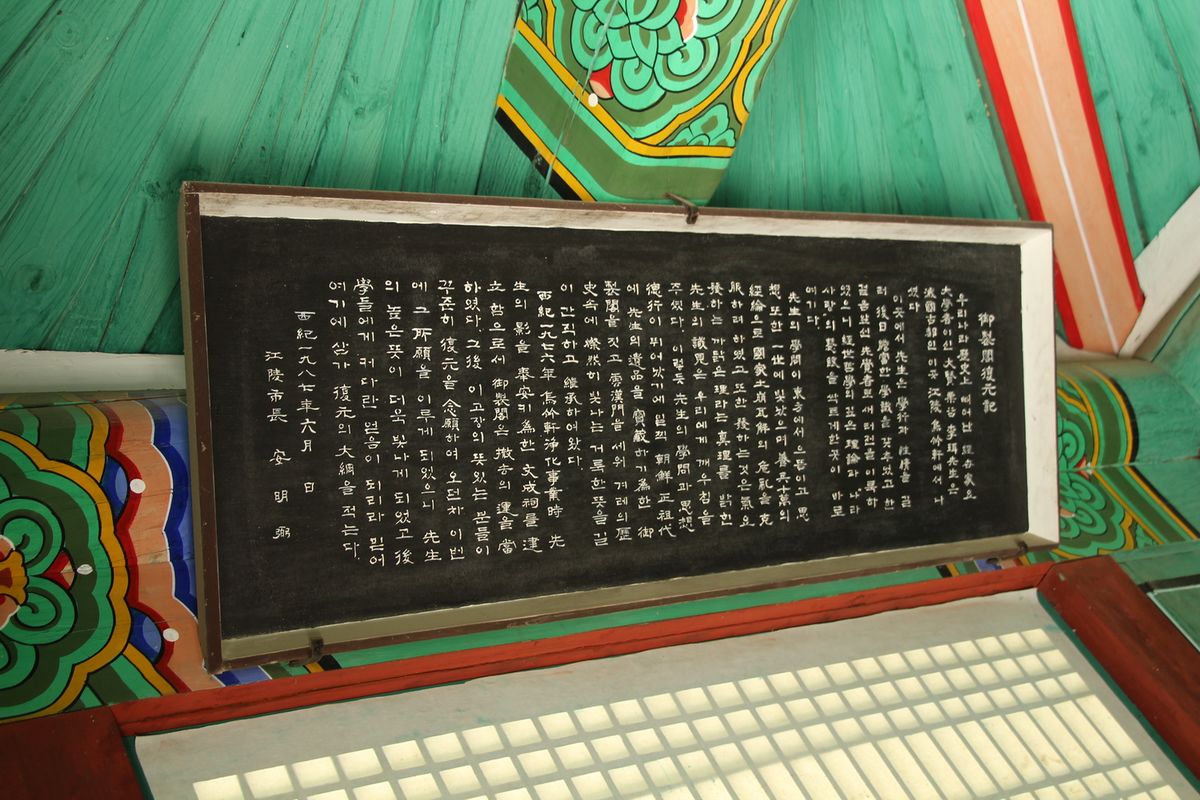 御製閣復元記
우리나라 歷史上 뛰어난 經世家요
大學者이신 大賢 栗谷 李珥先生은
이곳 江陵 烏竹軒에서 나
셨다
이곳에서 先生은 學問과 性情을 길
러 後日 該當한 學識을 갖추었고 한
걸음 앞선 先覺者로 새 터전을 이룩하
였으니 經世哲學의 깊은 理論과 나라
사랑의 을 싹트게한곳이 바로
여기다
先生의 學問이 東方에서 으뜸이고 思
想 또한 一世에 빛났으며 養兵十萬의
經論으로 國家土崩瓦解의 危亂을 克
服하려 하였고 또한 發하는 것은 氣요
發하는 까닭은 理라는 眞理를 밝힌
先生의 思은 우리에게 깨우침을
주었다 이렇듯 先生의 學問과 思想
德行이 뛰어났기에 일찍 朝鮮 正祖代
에 先生의 遺品을 寶藏하기 爲한 御
製閣을 짓고 雲漢門을 세워 겨레의 歷
史속에 燦然히 빛나는 거룩한 뜻을 길
이 간직하고 繼承하여 왔다
西紀一九七六年 烏竹軒淨化事業時 先
生의 影을 奉安키 爲한 文成祠를 建
立함으로서 御製閣은 撤去의 運을 當
하였다 그後 이 고장의 뜻있는 분들이
꾸준히 復元을 念願하여 오던차 이번
에 그 所願을 이루게 되었으니 先生
의 높은 뜻이 더욱 빛나게 되었고 後
學들에게 커다란 얻음이 되리라 믿어
여기에 삼가 復元의 大綱을 적는다
西紀一九八七年 六月 日
江陵市長 安明弼